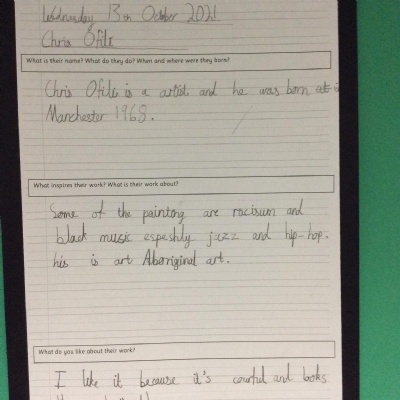 Wednesday 13th October 2021
Chris Ofili
What is their name? What do they do? When and where were they born?
Chris Ofili is a artist and he was born at
Manchester 1968.
What inspires their work? What is their work about?
Some of the paintong are racisum and
black music espeshily jazz and hip-hop.
his is art Aboriginal art.
What do you like about their work?
I like it because it's courful and looks